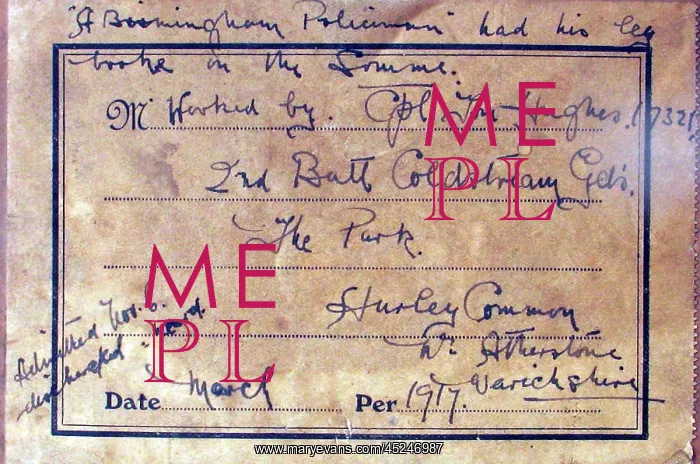 "A Birmingham Policiman" had his leg
broke on the Somme.
Mr Worked by. Cpl Hughes. (7321
2nd Batt Coldstream Gds.
The Park.
Hurley Common
Nr Atherstone
Warickshire
Admitted Nov. 6.
discharged
Date March Per 1917.
ME
PL
ME
PL
www.maryevans.com/45246987